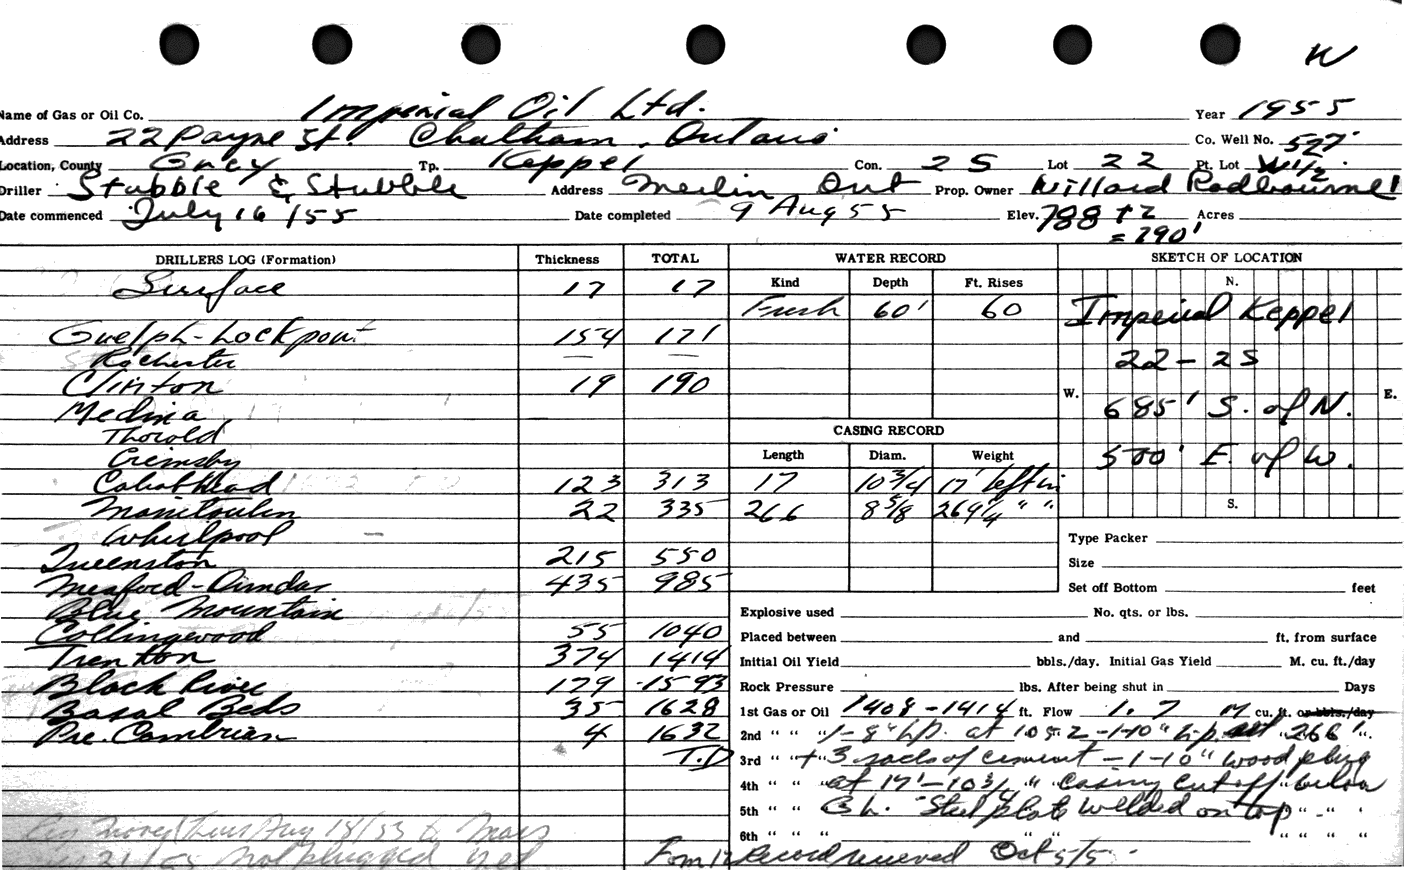 W
Name of Gas or Oil Co. Imperial Oil Ltd. Year 1955
Address 22 Payne St. Chatham, Ontario Co. Well No. 527
Location, County Grey Tp. Keppel Con. 25 Lot 22 Pt. Lot W1/2
Driller Stubble & Stubble Address Merlin, Ont Prop. Owner Willard Radbourne
Date commenced July 16/55 Date completed 9 Aug 55 Elev. 788 + 2 Acres
= 790'
DRILLERS LOG (Formation) Thickness TOTAL
Surface 17 17
Guelph-Lockport 154 171
Rochester — —
Clinton 19 190
Medina
Thorold
Grimsby
Cabot Head 123 313
Manitoulin 22 335
Whirlpool -
Queenston 215 550
Meaford-Dundas 435 985
Blue Mountain
Collingwood 55 1040
Trenton 374 1414
Black River 179 1593
Basal Beds 35 1628
Pre. Cambrian 4 1632
T.D
WATER RECORD
Kind Depth Ft. Rises
Fresh 60' 60
CASING RECORD
Length Diam. Weight
17 10 3/4 17' left in
266 8 5/8 269 1/4 " "
SKETCH OF LOCATION
N.
Imperial Keppel
22 - 25
W. E.
685' S. of N.
500' E. of W.
S.
Type Packer
Size
Set off Bottom feet
Explosive used No. qts. or lbs.
Placed between and ft. from surface
Initial Oil Yield bbls./day. Initial Gas Yield M. cu. ft./day
Rock Pressure lbs. After being shut in Days
1st Gas or Oil 1408-1414 ft. Flow 1.7 M cu. ft. or bbls./day
2nd " " " 1-8" h.p. at 1052-1-10" h.p. at 266'.
3rd " " " + 3 sacks of cement - 1-10" wood plug
4th " " " at 17'-10 3/4" casing cut off below
5th " " " G.L. Steel plate welded on top " "
6th " " " " " " " " "
Rig Moved Thurs Aug 18/55 to
21/55 Not plugged yet
Form 12 Record received Oct 5/55.